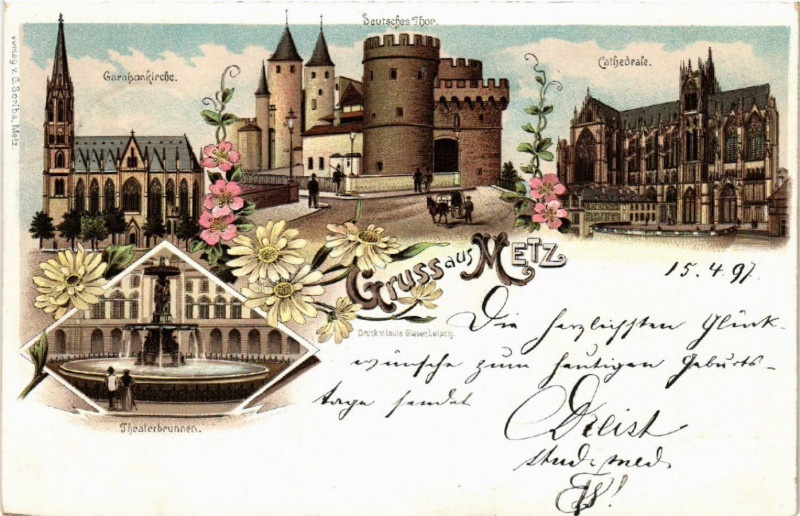 Deutsches Thor.
Garnisonkirche.
Cathedrale.
Verlag v. G. Scriba, Metz.
Gruss aus METZ
15.4.97.
Druck v. Louis Glaser, Leipzig.
Die herzlichsten Glück-
wünsche zum heutigen Geburts-
tage sendet
Dreist
stud. med.
Theaterbrunnen.